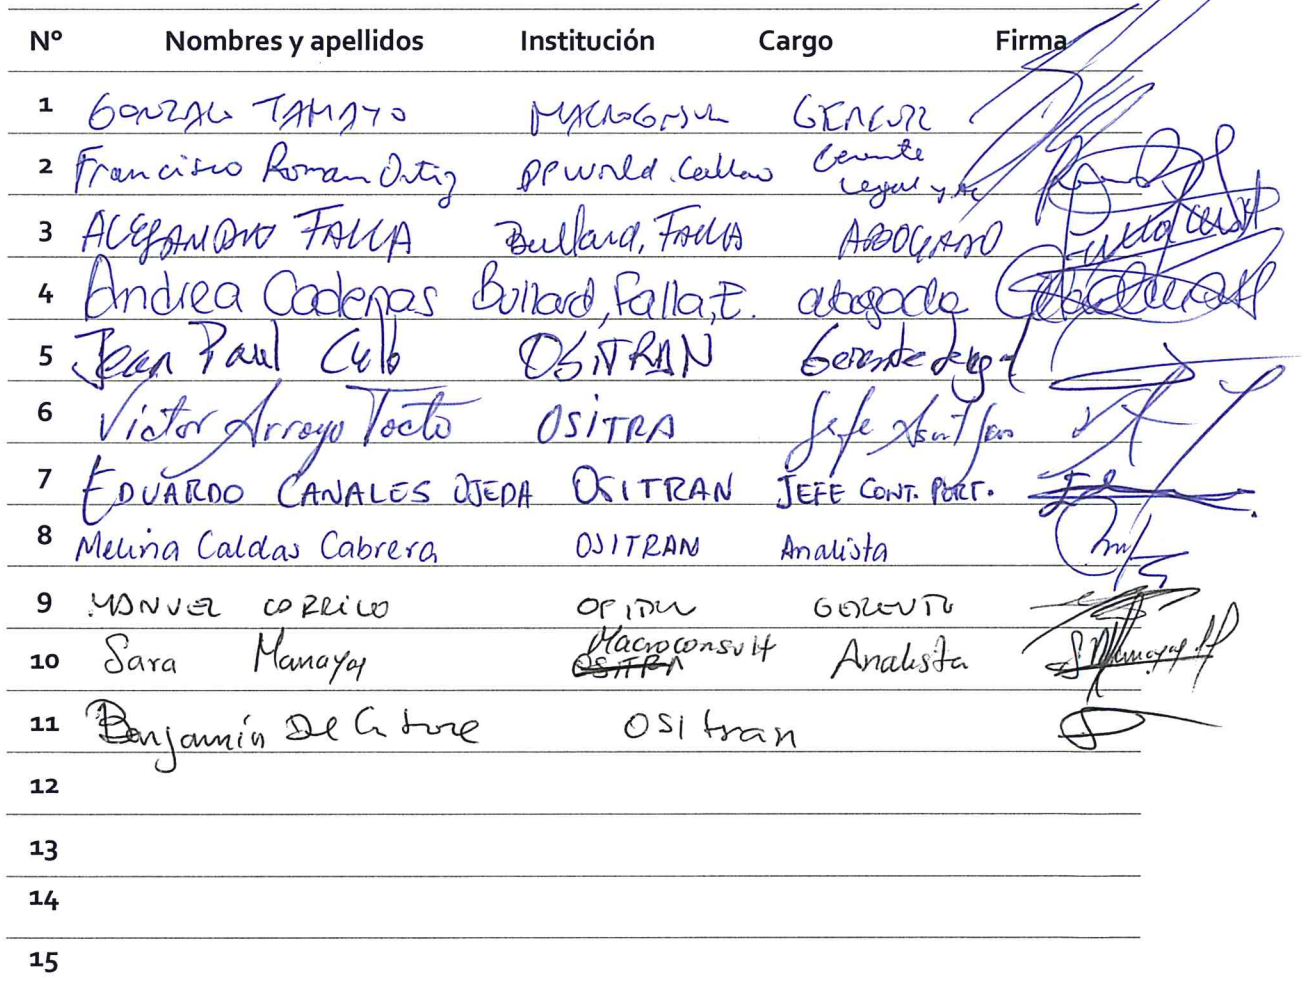 Nº Nombres y apellidos Institución Cargo Firma
1 GONZALO TAMAYO MACROCONSULT GERENTE
2 Francisco Roman Ortiz DP World Callao Gerente
Legal y
3 ALEJANDRO FALLA Bullard, FALLA ABOGADO
4 Andrea Cadenas Bullard, Falla, E. abogada
5 Jean Paul OSITRAN Gerente
6 Victor Arroyo Tocto OSITRA Jefe
7 EDUARDO CANALES OJEDA OSITRAN JEFE CONT. PORT.
8 Melina Caldas Cabrera OSITRAN Analista
9 MANUEL CARRILLO GERENTE
10 Sara Manayay Macroconsult Analista
OSITRA
11 Benjamín De la Torre OSItran
12
13
14
15